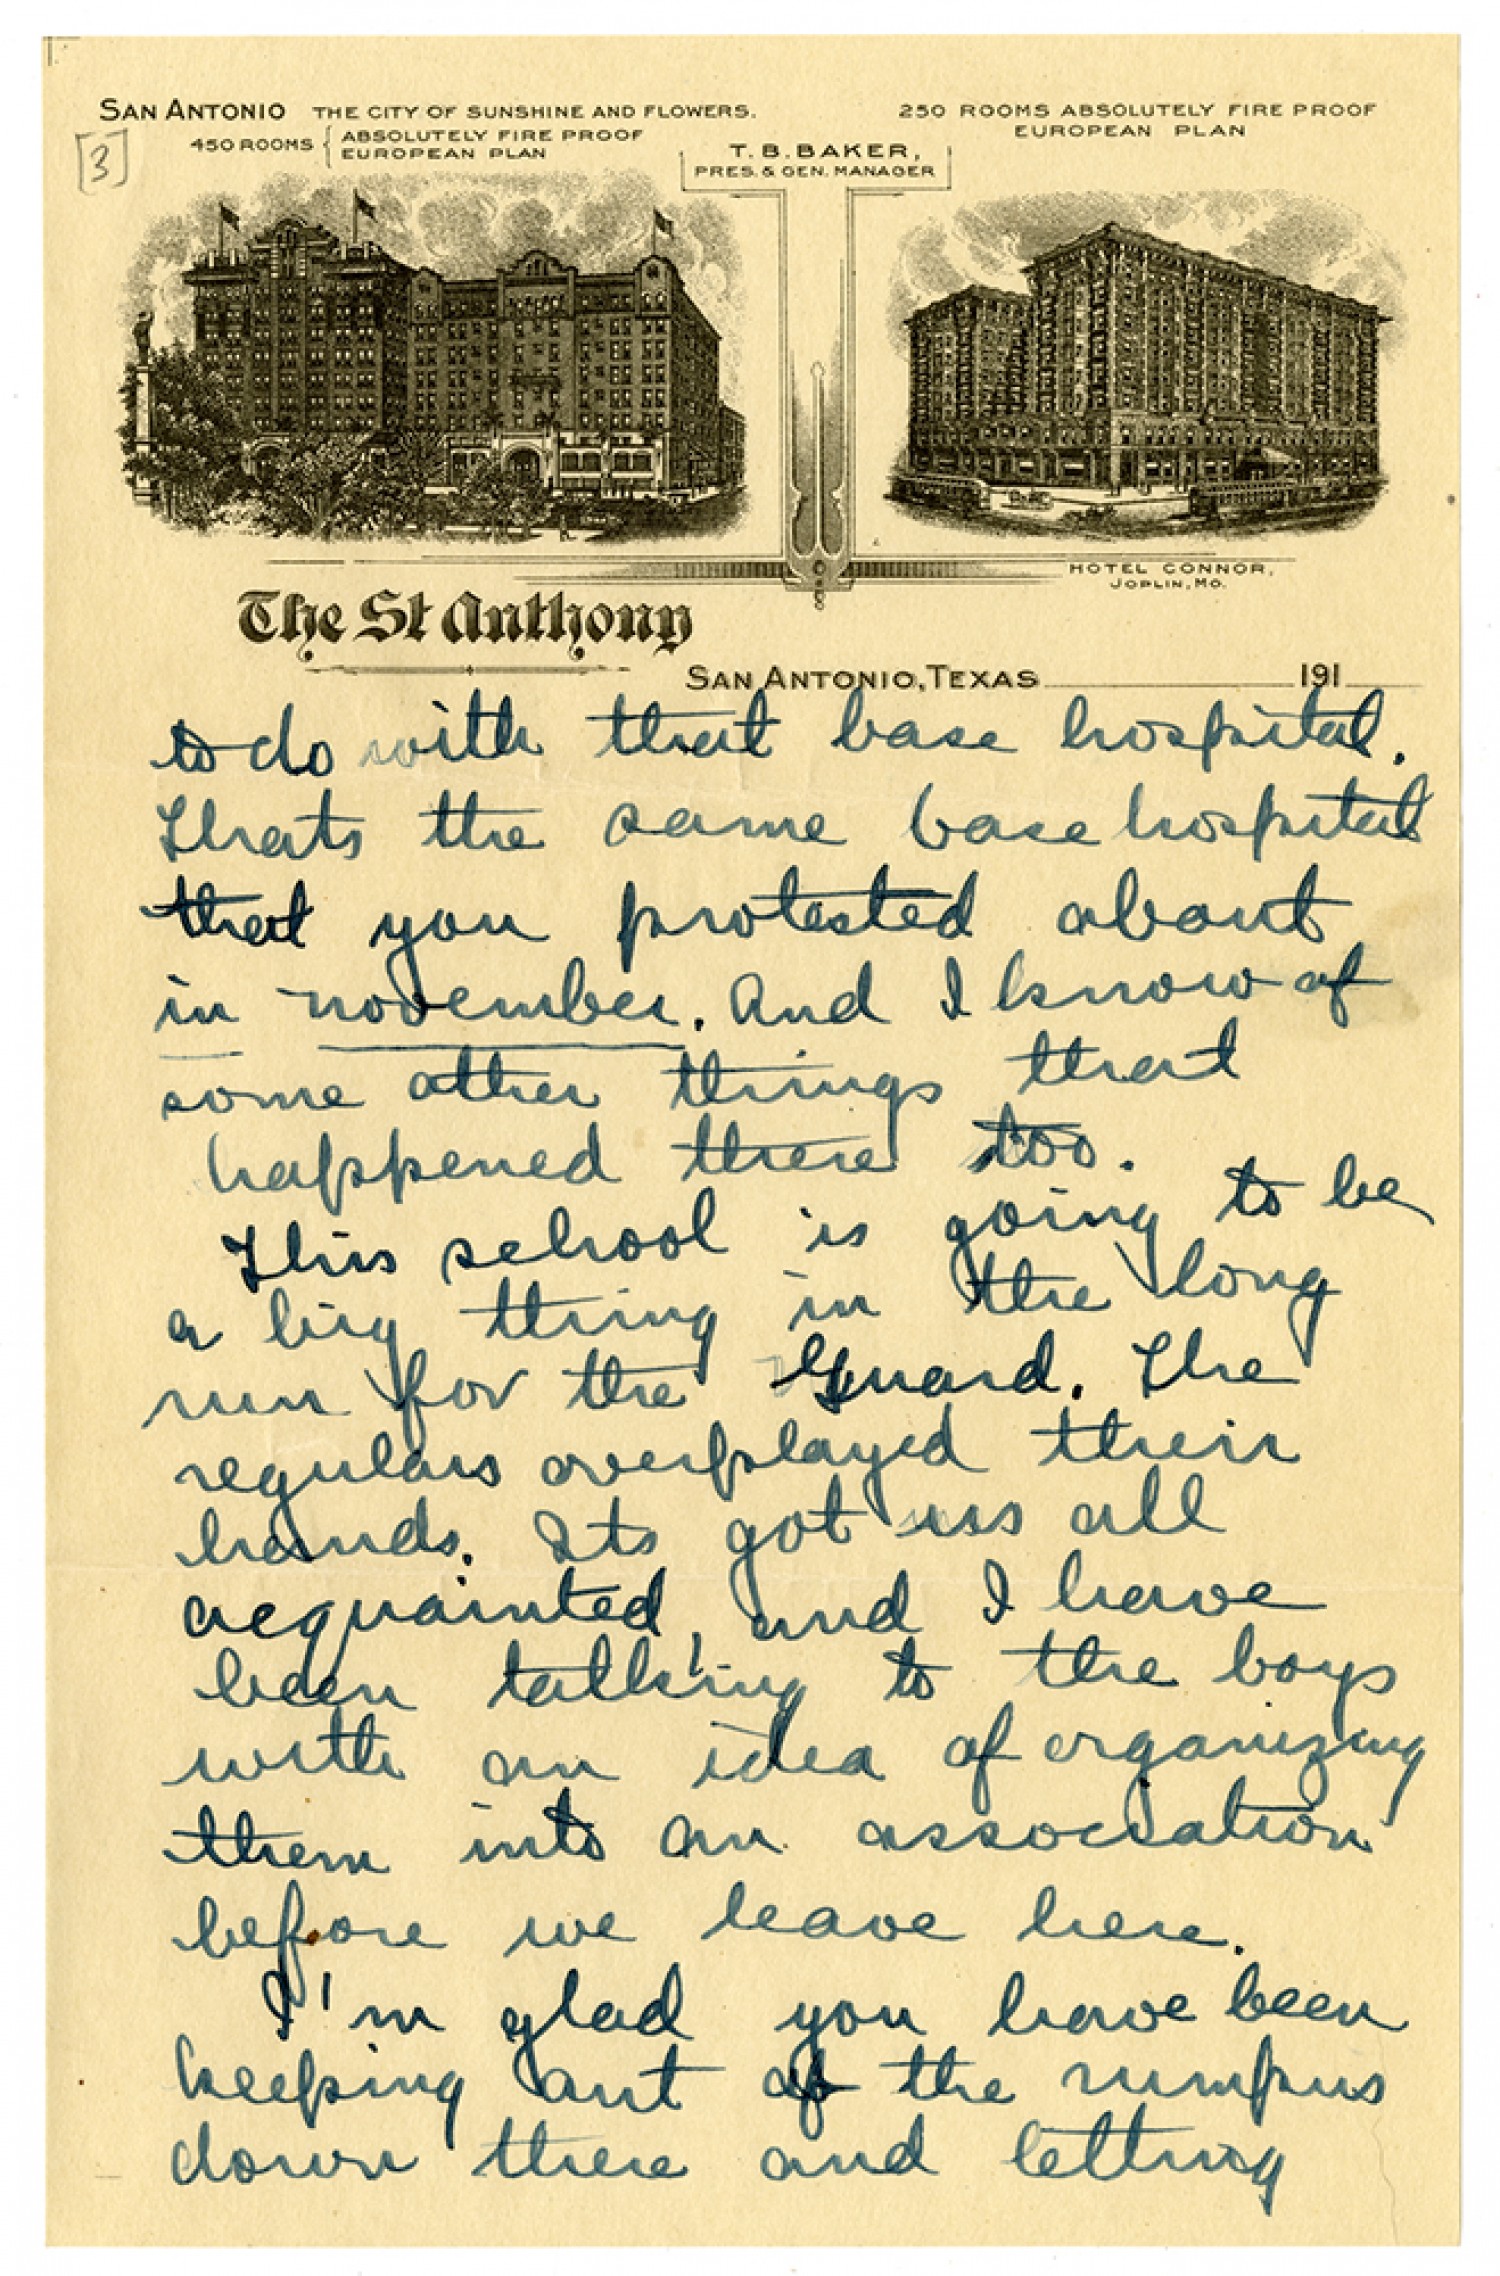 SAN ANTONIO THE CITY OF SUNSHINE AND FLOWERS.
450 ROOMS { ABSOLUTELY FIRE PROOF
EUROPEAN PLAN
[3]
T. B. BAKER,
PRES. & GEN. MANAGER
250 ROOMS ABSOLUTELY FIRE PROOF
EUROPEAN PLAN
HOTEL CONNOR,
JOPLIN, MO.
The St Anthony
SAN ANTONIO, TEXAS 191
to do with that base hospital.
Thats the same base hospital
that you protested about
in november. And I know of
some other things that
happened there too.
This school is going to be
a big thing in the long
run for the Guard. The
regulars overplayed their
hands. Its got us all
acquainted, and I have
been talking to the boys
with an idea of organizing
them into an association
before we leave here.
I'm glad you have been
keeping out of the rumpus
down there and letting